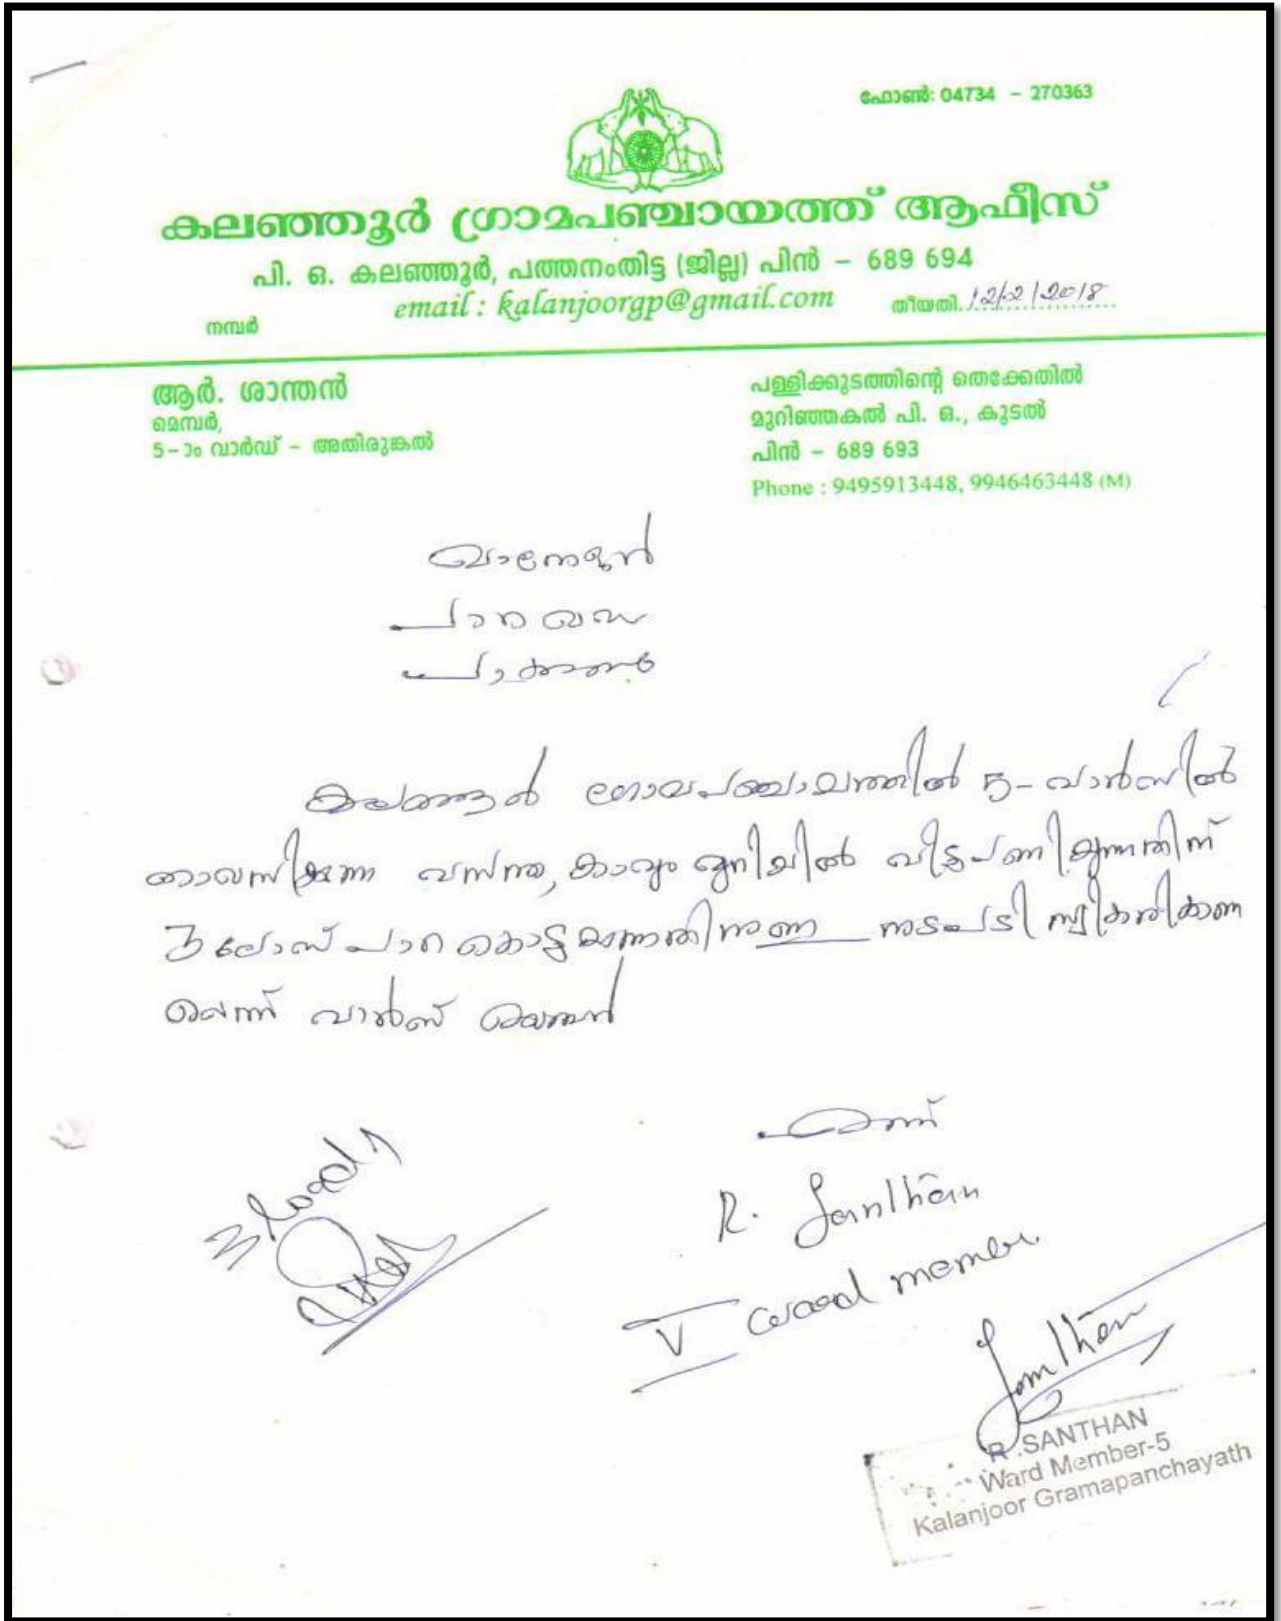 ഫോൺ: 04734 - 270363
കലഞ്ഞൂർ ഗ്രാമപഞ്ചായത്ത് ആഫീസ്
പി. ഒ. കലഞ്ഞൂർ, പത്തനംതിട്ട (ജില്ല) പിൻ - 689 694
email : kalanjoorgp@gmail.com
തീയതി. 12/2/2018
നമ്പർ
ആർ. ശാന്തൻ
മെമ്പർ,
5-ാം വാർഡ് - അതിരുങ്കൽ
പള്ളിക്കൂടത്തിന്റെ തെക്കേതിൽ
മുറിഞ്ഞകൽ പി. ഒ., കൂടൽ
പിൻ - 689 693
Phone : 9495913448, 9946463448 (M)
മാനേജർ
പാറമട
കലഞ്ഞൂർ 5-വാർഡിൽ
താമസിക്കുന്ന വസന്ത, വീടുപണിക്കുന്നതിന്
3 ലോഡ് പാറ നടപടി സ്വീകരിക്കണ
മെന്ന് വാർഡ് മെമ്പർ
എന്ന്
3 load
R. Santhan
V ward member
Santhan
R. SANTHAN
Ward Member-5
Kalanjoor Gramapanchayath